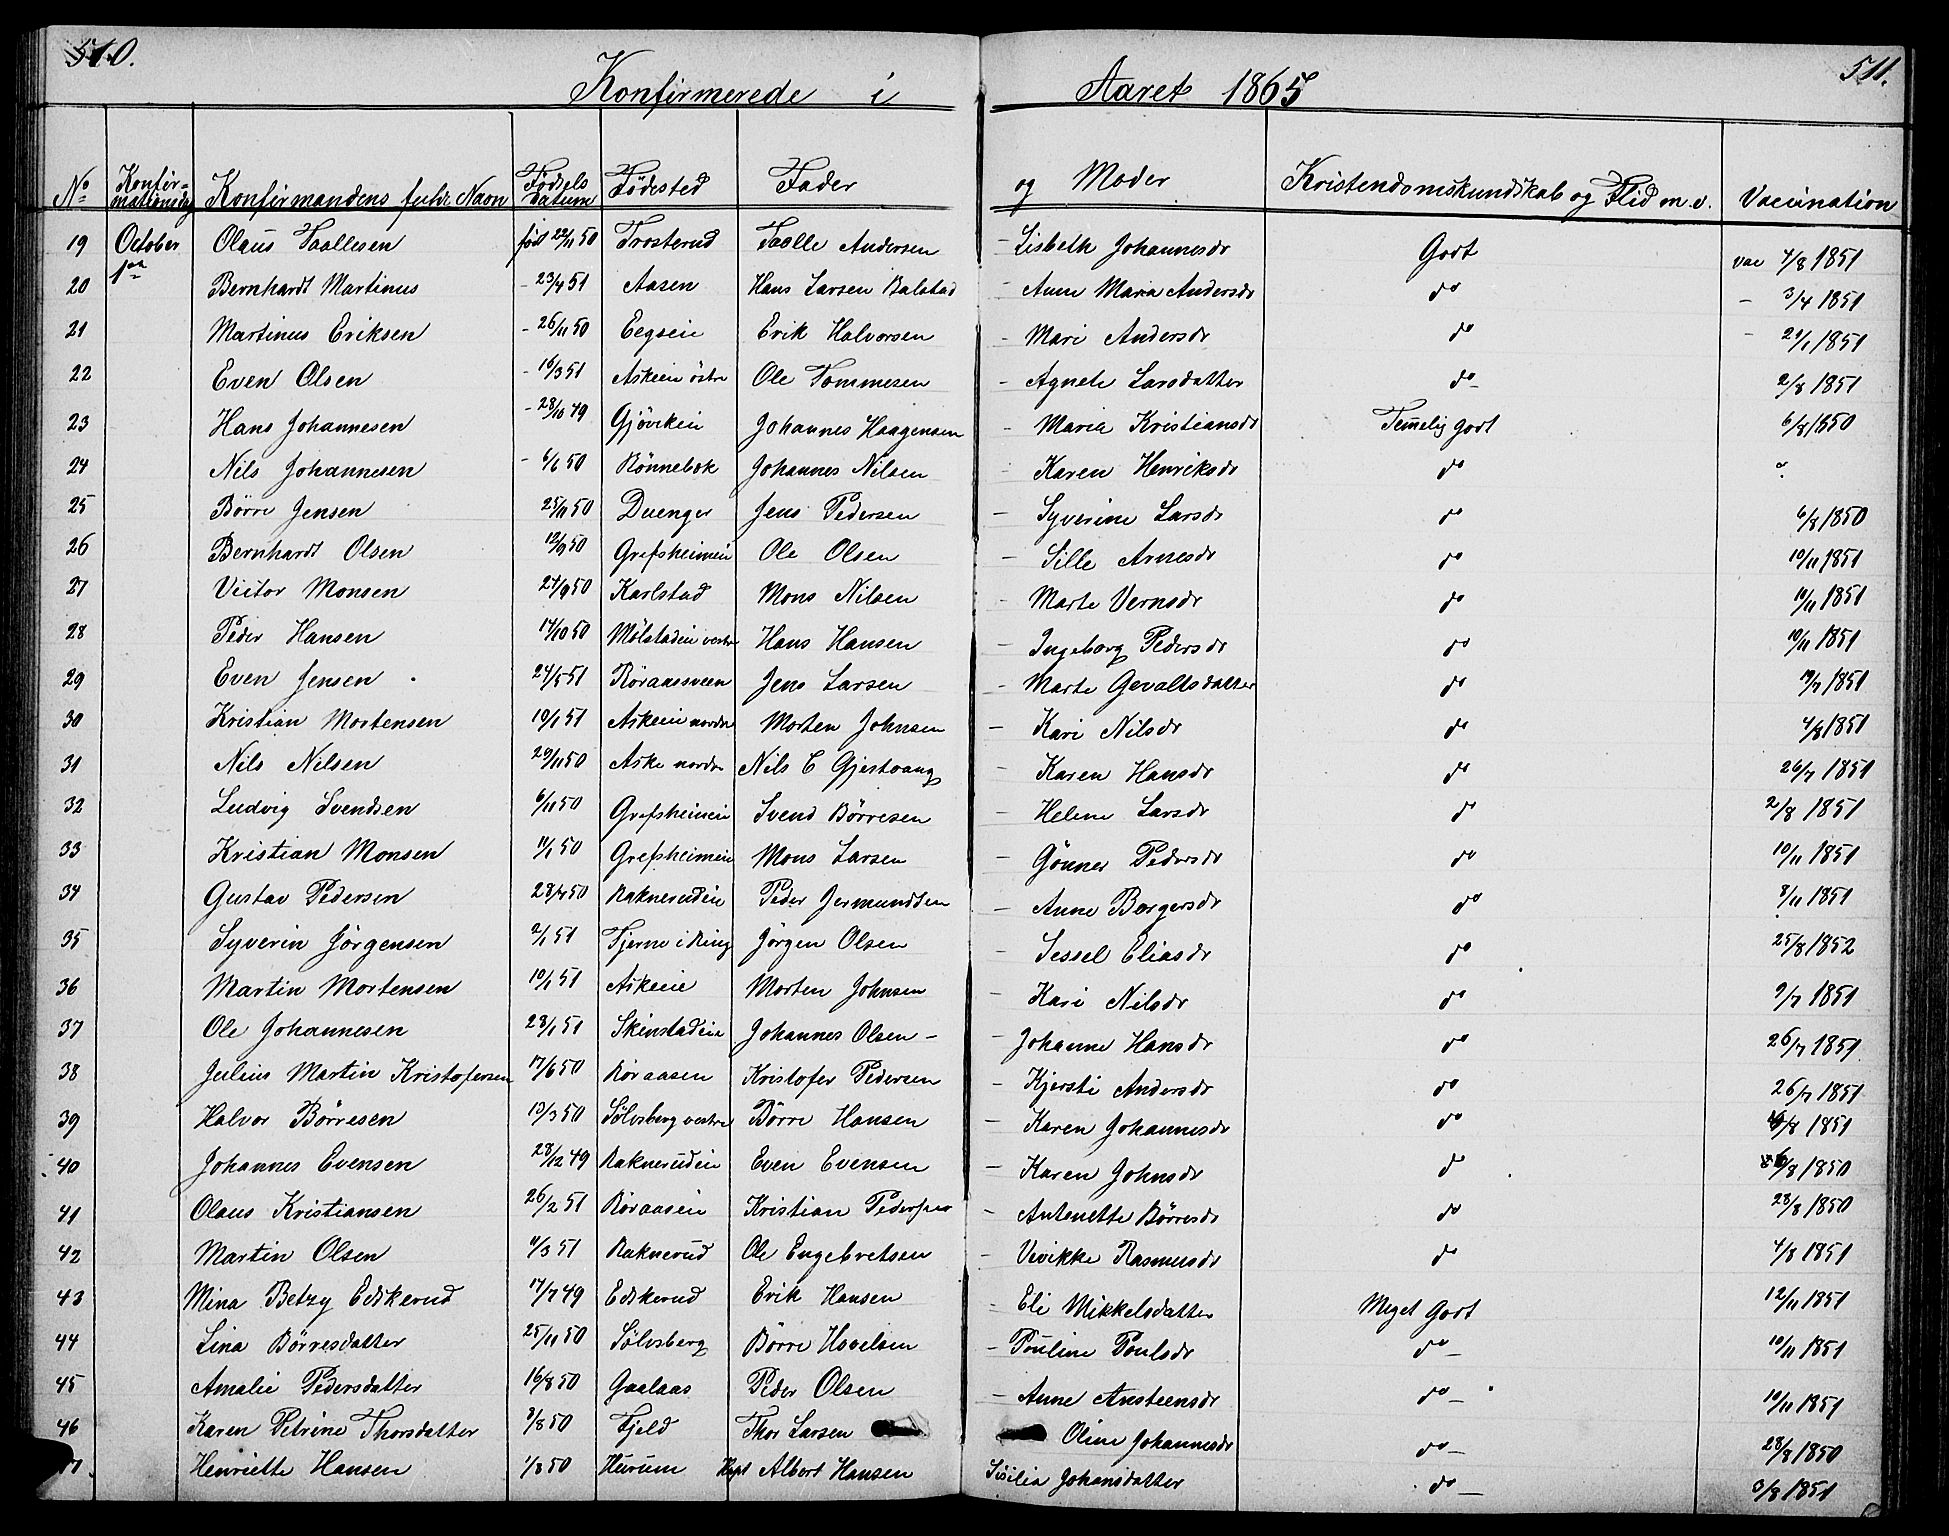 510.
511.
Konfirmerede i Aaret 1865
No Konfir= mationsdag Konfirmandens fulde Navn Fødsels datum Födested Fader og Moder Kristendomskundskab og Flid m.v. Vaccination
19 October 1ste Olaus Taallesen född 22/11 50 Trosterud Taalle Andersen – Lisbeth Johannesdr Godt vac 4/8 1851
20 Bernhardt Martinus – 23/4 51 Aasen Hans Larsen Balstad – Anne Maria Andersdr do – 3/4 1851
21 Martinus Eriksen – 26/11 50 Eegseie Erik Halvorsen – Mari Andersdr do – 21/1 1851
22 Even Olsen – 16/3 51 Askeeie östre Ole Tommesen – Agnete Larsdatter do – 2/8 1851
23 Hans Johannesen – 28/10 49 Gjöviken Johannes Haagensen – Maria Kristiansdr Temmelig godt 6/8 1850
24 Nils Johannesen – 6/6 50 Rönnebek Johannes Nilsen – Karen Henriksdr do
25 Börre Jensen 25/11 50 Duenger Jens Pedersen – Syverine Larsdr do 6/8 1850
26 Bernhardt Olsen 12/9 50 Grefsheimeie Ole Olsen – Sille Arnesdr do 10/11 1851
27 Victor Monsen 27/9 50 Karlstad Mons Nilsen – Marte Vernsdr do 10/11 1851
28 Peder Hansen 14/10 50 Mølstadeie vestre Hans Hansen – Ingeborg Pedersdr do 10/11 1851
29 Even Jensen 24/5 51 Röraasveen Jens Larsen – Marte Gevaltsdatter do 1851
30 Kristian Mortensen 10/1 51 Askeeie nordre Morten Johnsen – Kari Nilsdr do 4/8 1851
31 Nils Nilsen 20/11 50 Aske nordre Nils C Gjestvang – Karen Hansdr do 26/7 1851
32 Ludvig Svendsen 6/11 50 Grefsheimeie Svend Börresen – Helene Larsdr do 2/8 1851
33 Kristian Monsen 11/1 50 Grefsheimeie Mons Larsen – Gönner Pedersdr do 10/11 1851
34 Gustav Pedersen 28/7 50 Raknerudeie Peder Jermundsen – Anne Borgersdr do 8/11 1851
35 Syverin Jörgensen 2/1 51 Tjerne i Ring Jörgen Olsen – Sessel Eliasdr do 25/8 1852
36 Martin Mortensen 10/1 51 Askeeie Morten Johnsen – Kari Nilsdr do 9/7 1851
37 Ole Johannesen 28/1 51 Skinstadeie Johannes Olsen – – Johanne Hansdr do 26/7 1851
38 Julius Martin Kristofersen 17/6 50 Röraasen Kristofer Pedersen – Kjersti Andersdr do 26/7 1851
39 Halvor Börresen 13/3 50 Sølvsberg vestre Börre Hansen – Karen Johannesdr do 6/8 1851
40 Johannes Evensen 28/12 49 Raknerudeie Even Evensen – Karen Johnsdr do 6/8 1850
41 Olaus Kristiansen 26/2 51 Röraaseie Kristian Pedersen – Antonette Börresdr do 28/8 1850
42 Martin Olsen 11/3 51 Raknerud Ole Engebretsen – Vivikke Rasmusdr do 4/8 1851
43 Mina Betzy Edskerud 17/7 49 Edskerud Erik Hansen – Eli Mikkelsdatter Meget Godt 12/11 1851
44 Lina Börresdatter 25/11 50 Sølvsberg Börre Hovelsen – Pouline Poulsdr do – 10/11 1851
45 Amalie Pedersdatter 16/8 50 Gaalaas Peder Olsen – Anne Ansteensdr do – 10/11 1851
46 Karen Petrine Thorsdatter 3/8 50 Fjeld Thor Larsen Oline Johannesdr do – 28/8 1850
Henriette Hansen 1/8 50 Hurum Kapt Albert Hansen Sisilia Johansdatter do – 3/8 1851